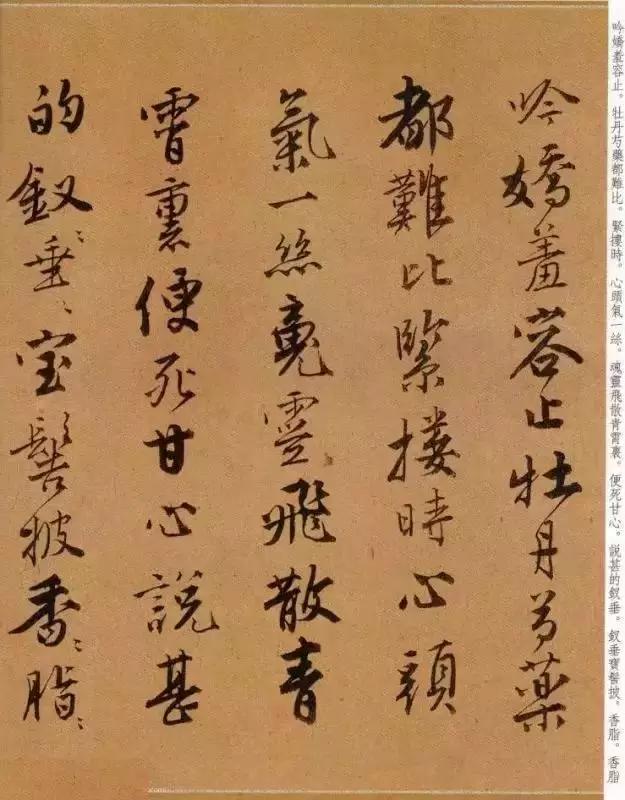 吟嬌羞容止牡丹芍藥
都難比緊摟時心頭
氣一絲䰟靈飛散青
霄裏便死甘心說甚
的釵〻垂〻宝髻披香〻脂〻
吟嬌羞容止。牡丹芍藥都難比。緊摟時。心頭氣一絲。魂靈飛散青霄裏。便死甘心。説甚的釵垂。釵垂寶髻披。香脂。香脂